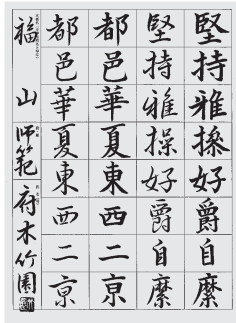 堅持雅操好爵自縻
堅持雅操好爵自縻
都邑華夏東西二京
都邑華夏東西二京
福山師範府木竹園